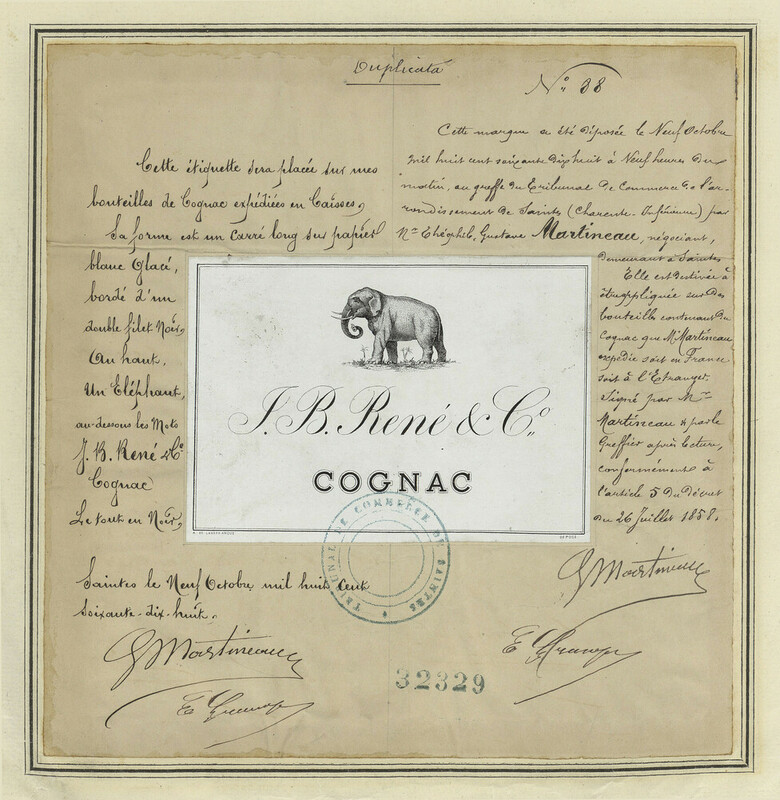 Duplicata
N° 38
Cette étiquette sera placée sur mes
bouteilles de Cognac expédiées en Caisses,
Sa forme est un carré long sur papier
blanc Glacé,
bordé d'un
double filet Noir,
Au haut,
Un Eléphant,
au-dessous les Mots
J. B. René & Co
Cognac
Le tout en Noir,
Saintes le Neuf Octobre mil huit Cent
Soixante-dix-huit.
G Martineau
Cette marque a été déposée le Neuf Octobre
mil huit cent soixante dix huit à Neuf heures du
matin, au greffe du Tribunal de Commerce de l'ar-
rondissement de Saintes (Charente-Inférieure) par
Mr Théophile, Gustave Martineau, négociant,
demeurant à Saintes
Elle est destinée à
être appliquée sur des
bouteilles contenant du
Cognac que Mr Martineau
expédie soit en France
soit à l'Etranger.
Signé par Mr
Martineau & par le
Greffier après lecture,
conformément à
l'article 5 du Décret
du 26 Juillet 1858.
G Martineau
J. B. René & Co
COGNAC
DÉPOSÉ
TRIBUNAL DE COMMERCE DE SAINTES
32329